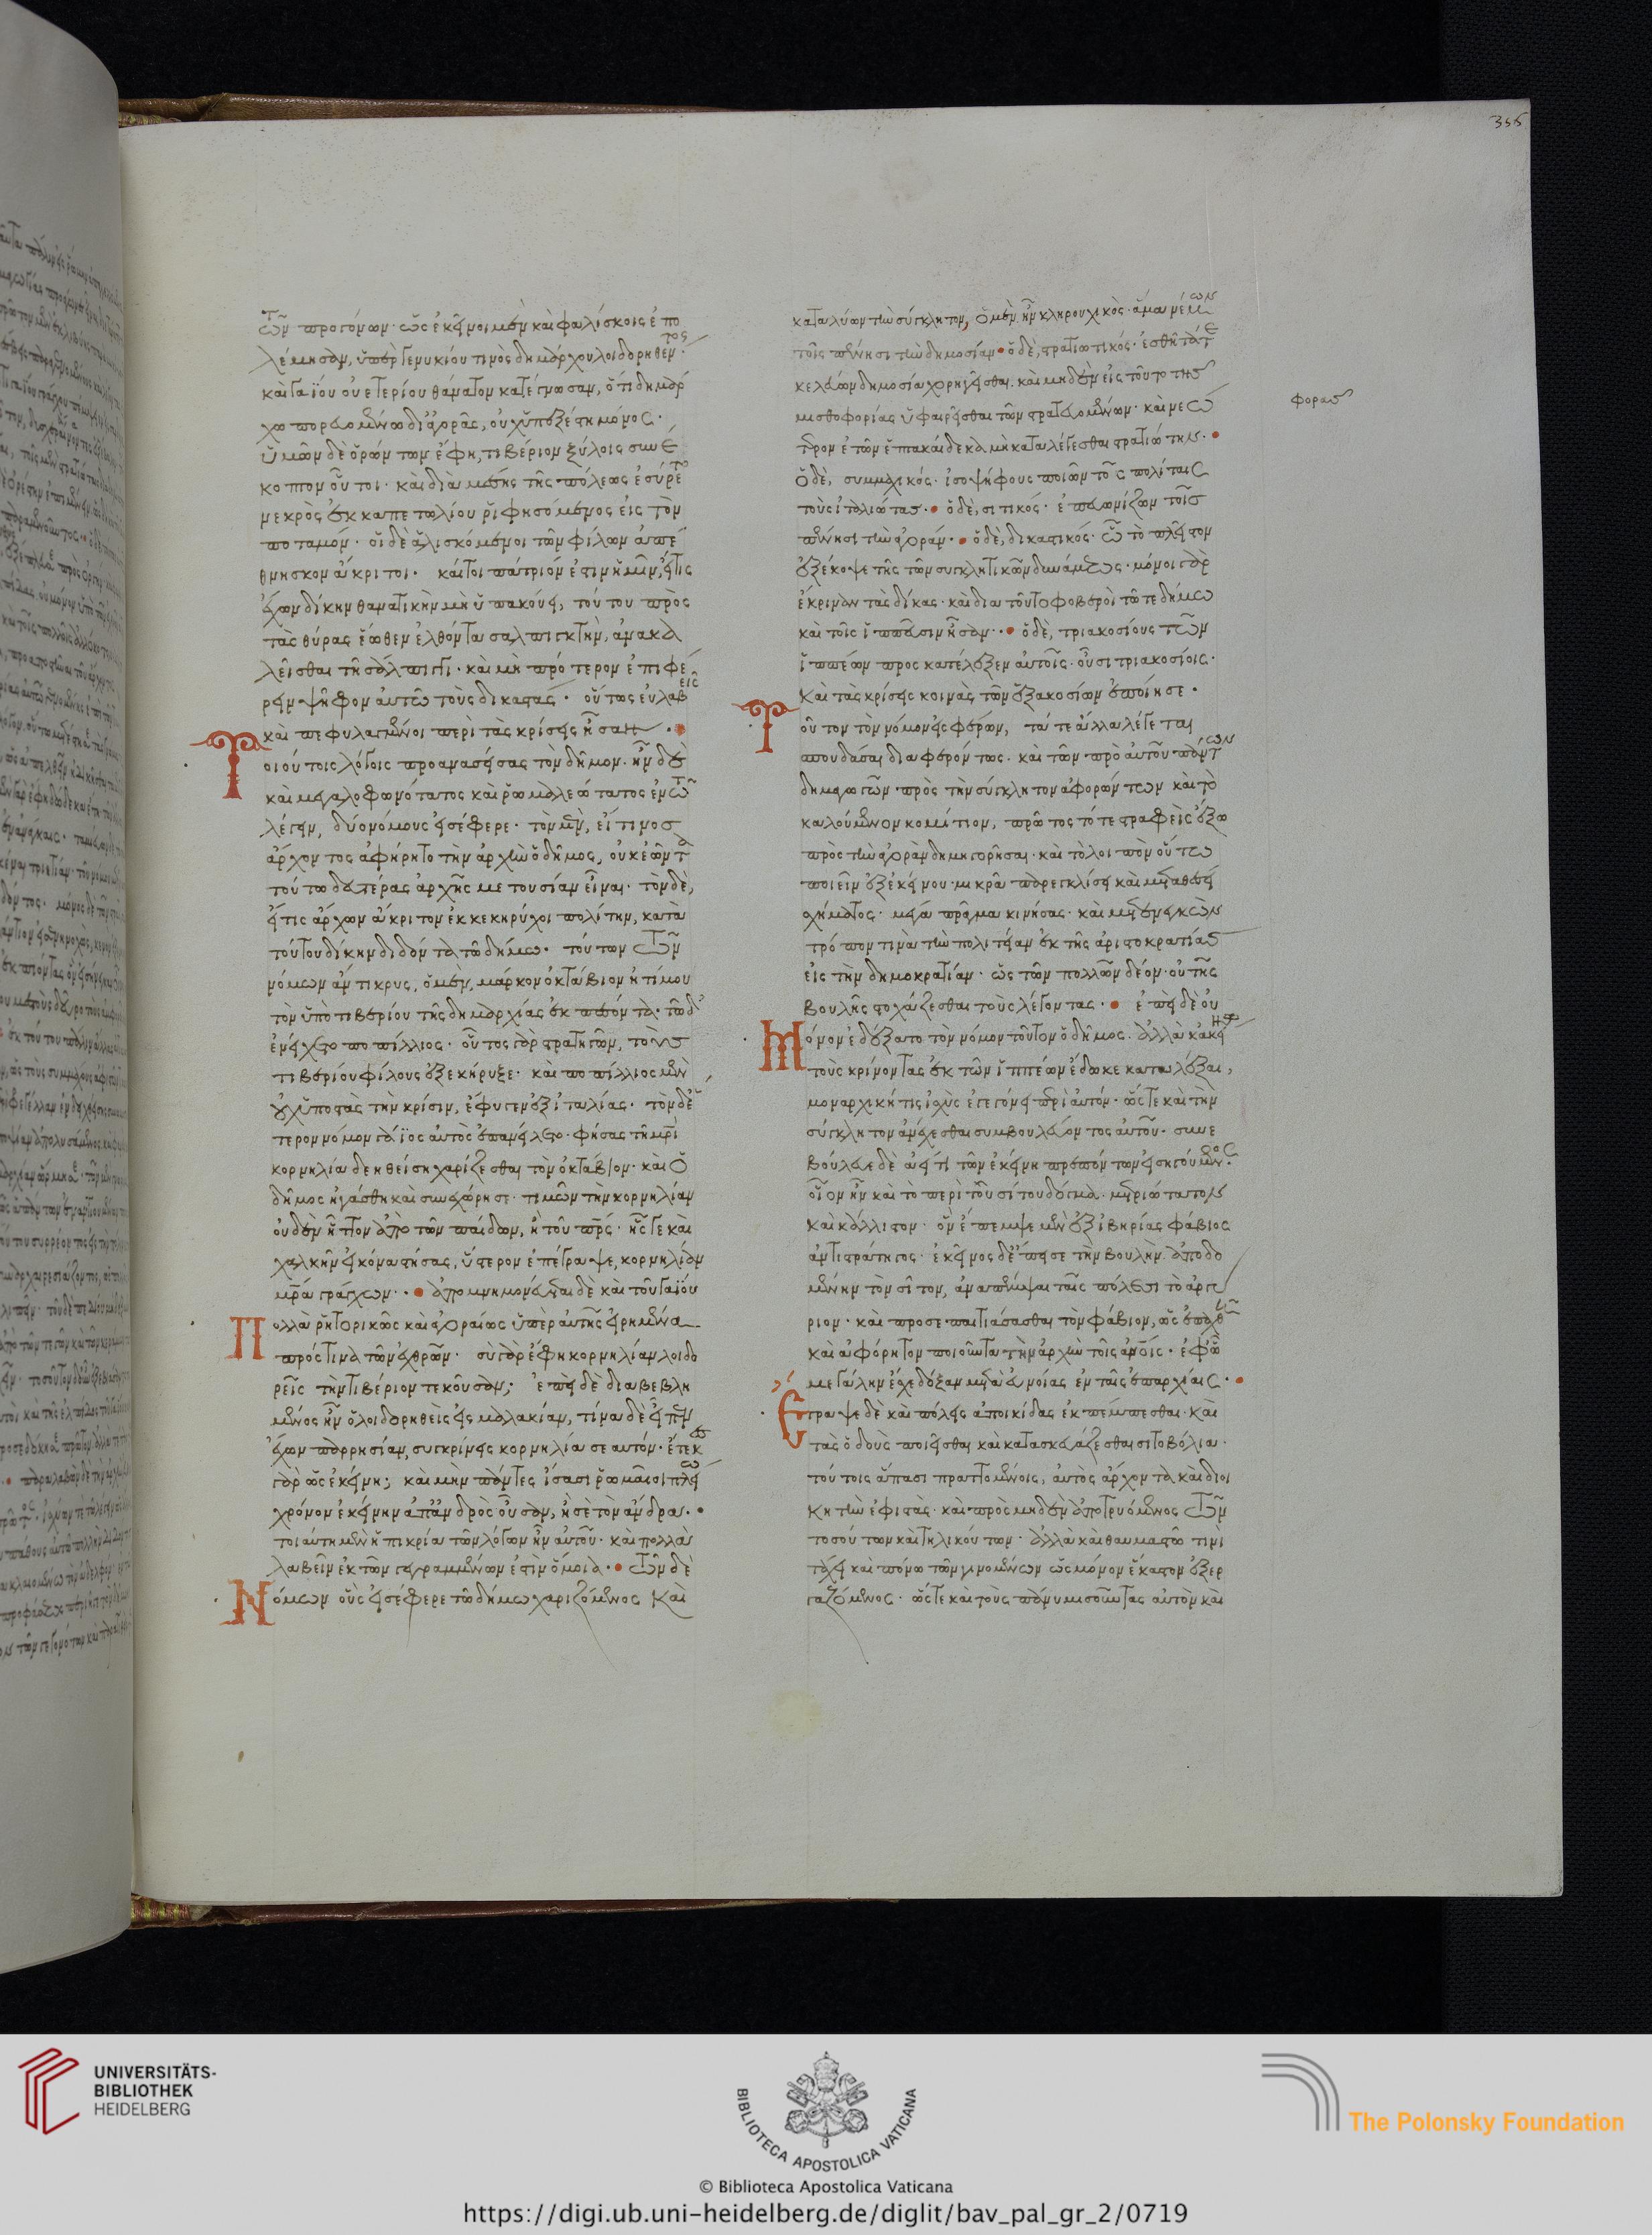 τῶν προγόνων· ὡς ἐκεῖνοι μὲν καὶ φαλίσκοις ἐπο
λέμησαν, ὑπὲρ γενυκίου τινὸς δημάρχου λοιδορηθέντος·
καὶ γαΐου οὐετερίου θάνατον κατέγνωσαν, ὅτι δημάρ
χω πορευομένω δι' ἀγορᾶς, οὐχ ὑπεξέστη μόνος·
ὑμῶν δὲ ὁρώντων ἔφη, τιβέριον ξύλοις συνέ
κοπτον οὗτοι· καὶ διὰ μέσης τῆς πόλεως ἐσύρετο
νεκρὸς ἐκ καπετωλίου ῥιφησόμενος εἰς τὸν
ποταμόν· οἱ δὲ ἁλισκόμενοι τῶν φίλων ἀπέ
θνησκον ἄκριτοι· καίτοι πάτριόν ἐστιν ἡμῖν, εἴ τις
ἔχων δίκην θανατικὴν μὴ ὑπακούει, τούτου πρὸς
τὰς θύρας ἕωθεν ἐλθόντα σαλπιγκτὴν, ἀνακα
λεῖσθαι τῆ σάλπιγγι· καὶ μὴ πρότερον ἐπιφέ
ρειν ψῆφον αὐτῶ τοὺς δικαστάς· οὕτως εὐλαβεῖς
καὶ πεφυλαγμένοι περὶ τὰς κρίσεις ἦσαν·
Τοιούτοις λόγοις προανασείσας τὸν δῆμον· ἦν δὲ
καὶ μεγαλοφωνότατος καὶ ῥωμαλεώτατος ἐν τῶ
λέγειν, δύο νόμους εἰσέφερε· τὸν μὲν, εἴ τινος
ἄρχοντος ἀφήρητο τὴν ἀρχὴν ὁ δῆμος, οὐκ ἐῶντα
τούτω δευτέρας ἀρχῆς μετουσίαν εἶναι· τὸν δὲ,
εἴ τις ἄρχων ἄκριτον ἐκκεκηρύχοι πολίτην, κατὰ
τούτου δίκην διδόντα τῶ δήμω· τούτων τῶν
νόμων ἄντικρυς, ὁ μὲν, μάρκον ὀκτάβιον ἠτίμου
τὸν ὑπὸ τιβερίου τῆς δημαρχίας ἐκπεσόντα· τῶ δ'
ἐνείχετο ποπίλλιος· οὗτος γὰρ στρατηγῶν, τοὺς
τιβερίου φίλους ἐξεκήρυξε· καὶ ποπίλλιος μὲν
οὐχ ὑποστὰς τὴν κρίσιν, ἔφυγεν ἐξ ἰταλίας· τὸν δὲ ἕ
τερον νόμον γάϊος αὐτὸς ἐπανείλετο· φήσας τῆ μητρὶ
κορνηλία δεηθείση χαρίζεσθαι τὸν ὀκτάβιον· καὶ ὁ
δῆμος ἠγάσθη καὶ συνεχώρησε· τιμῶν τὴν κορνηλίαν
οὐδὲν ἧττον ἀπὸ τῶν παίδων, ἢ τοῦ πατρός· ἧς γε καὶ
χαλκῆν εἰκόνα στήσας, ὕστερον ἐπέγραψε, κορνηλίαν
μητέρα γράγχων· ἀπομνημονεύεται δὲ καὶ τοῦ γαΐου
Πολλὰ ῥητορικῶς καὶ ἀγοραίως ὑπὲρ αὐτῆς εἰρημένα
πρός τινα τῶν ἐχθρῶν· σὺ γὰρ ἔφη κορνηλίαν λοιδο
ρεῖς τὴν τιβέριον τεκοῦσαν; ἐπεὶ δὲ διαβεβλη
μένος ἦν ὁ λοιδορηθεὶς εἰς μαλακίαν, τίνα δὲ εἶπεν
ἔχων παρρησίαν, συγκρίνεις κορνηλία σεαυτόν· ἔτεκες
γὰρ ὡς ἐκείνη; καὶ μὴν πάντες ἴσασι ῥωμαῖοι πλείω
χρόνον ἐκείνην ἀπ' ἀνδρὸς οὖσαν, ἢ σὲ τὸν ἄνδρα·
τοιαύτη μὲν ἡ πικρία τῶν λόγων ἦν αὐτοῦ· καὶ πολλὰ
λαβεῖν ἐκ τῶν γεγραμμένων ἐστὶν ὅμοια· τῶν δὲ
Νόμων οὓς εἰσέφερε τῶ δήμω χαριζόμενος καὶ
355
καταλύων τὴν σύγκλητον, ὁ μὲν ἦν κληρουχικὸς· ἅμα νέμων
τοῖς πένησι τὴν δημοσίαν· ὁ δὲ, στρατιωτικός· ἐσθῆτά τε
κελεύων δημοσία χορηγεῖσθαι· καὶ μηδὲν εἰς τοῦτο τῆς
μισθοφορίας ὑφαιρεῖσθαι τῶν στρατευομένων· καὶ νεώ
φορας
τερον ἐτῶν ἑπτακαίδεκα μὴ καταλέγεσθαι στρατιώτην·
ὁ δὲ, συμμαχικός· ἰσοψήφους ποιῶν τοῖς πολίταις
τοὺς ἰταλιώτας· ὁ δὲ, σιτικός· ἐπευωνίζων τοῖς
πένησι τὴν ἀγοράν· ὁ δὲ, δικαστικός· ὧ τὸ πλεῖστον
ἐξέκοψε τῆς τῶν συγκλητικῶν δυνάμεως· μόνοι γὰρ
ἔκριναν τὰς δίκας· καὶ διὰ τοῦτο φοβεροὶ τῶ τε δήμω
καὶ τοῖς ἱππεῦσιν ἦσαν· ὁ δὲ, τριακοσίους τῶν
ἱππέων προσκατέλεξεν αὐτοῖς· οὖσι τριακοσίοις·
καὶ τὰς κρίσεις κοινὰς τῶν ἑξακοσίων ἐποίησε·
Τοῦτον τὸν νόμον εἰσφέρων, τά τε ἄλλα λέγεται
σπουδάσαι διαφερόντως· καὶ τῶν πρὸ αὐτοῦ πάντων
δημαγωγῶν πρὸς τὴν σύγκλητον ἀφορώντων καὶ τὸ
καλούμενον κομίτιον, πρῶτος τότε στραφεὶς ἔξω
πρὸς τὴν ἀγορὰν δημηγορῆσαι· καὶ τὸ λοιπὸν οὕτω
ποιεῖν ἐξ ἐκείνου· μικρᾶ παρεγκλίσει καὶ μεταθέσει
σχήματος· μέγα πρᾶγμα κινήσας· καὶ μετενεγκὼν
τρόπον τινὰ τὴν πολιτείαν ἐκ τῆς ἀριστοκρατίας
εἰς τὴν δημοκρατίαν· ὡς τῶν πολλῶν δέον· οὐ τῆς
βουλῆς στοχάζεσθαι τοὺς λέγοντας· ἐπεὶ δὲ οὐ
Μόνον ἐδέξατο τὸν νόμον τοῦτον ὁ δῆμος· ἀλλὰ κἀκείνω
τοὺς κρίνοντας ἐκ τῶν ἱππέων ἔδωκε καταλέξαι,
μοναρχική τις ἰσχὺς ἐγεγόνει περὶ αὐτόν· ὥστε καὶ τὴν
σύγκλητον ἀνέχεσθαι συμβουλεύοντος αὐτοῦ· συνε
βούλευε δὲ ἀεί τι τῶν ἐκείνη πρεπόντων εἰσηγούμενος·
οἷον ἦν καὶ τὸ περὶ τοῦ σίτου δόγμα· μετριώτατον
καὶ κάλλιστον· ὃν ἔπεμψε μὲν ἐξ ἰβηρίας φάβιος
ἀντιστράτηγος· ἐκεῖνος δὲ ἔπεισε τὴν βουλὴν ἀποδο
μένην τὸν σῖτον, ἀναπέμψαι ταῖς πόλεσι τὸ ἀργύ
ριον· καὶ προσεπαιτιάσασθαι τὸν φάβιον, ὡς ἐπαχθῆ
καὶ ἀφόρητον ποιοῦντα τὴν ἀρχὴν τοῖς ἀνθρώποις· ἐφ' ὧ
μεγάλην ἔσχε δόξαν μετὰ εὐνοίας ἐν ταῖς ἐπαρχίαις·
Ἔγραψε δὲ καὶ πόλεις ἀποικίδας ἐκπέμπεσθαι· καὶ
τὰς ὁδοὺς ποιεῖσθαι καὶ κατασκευάζεσθαι σιτοβόλια·
τούτοις ἅπασι πραττομένοις, αὐτὸς ἄρχοντα καὶ διοι
κητὴν ἐφιστὰς· καὶ πρὸς μηδὲν ἀποτρυόμενος τῶν
τοσούτων καὶ τηλικούτων· ἀλλὰ καὶ θαυμαστῶ τινὶ
τάχει καὶ πόνω τῶν γινομένων ὡς μόνον ἕκαστον ἐξερ
γαζόμενος· ὥστε καὶ τοὺς πάνυ μισοῦντας αὐτὸν καὶ
UNIVERSITÄTS-
BIBLIOTHEK
HEIDELBERG
BIBLIOTECA APOSTOLICA VATICANA
The Polonsky Foundation
© Biblioteca Apostolica Vaticana
https://digi.ub.uni-heidelberg.de/diglit/bav_pal_gr_2/0719